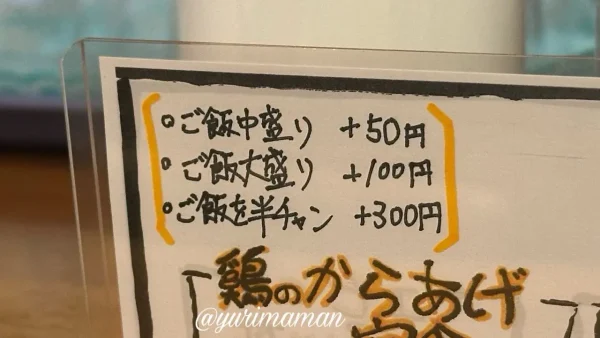 。ご飯中盛り +50円
・ご飯大盛り +100円
。ご飯を半チャン +300円
鶏のからあげ
@yurimaman